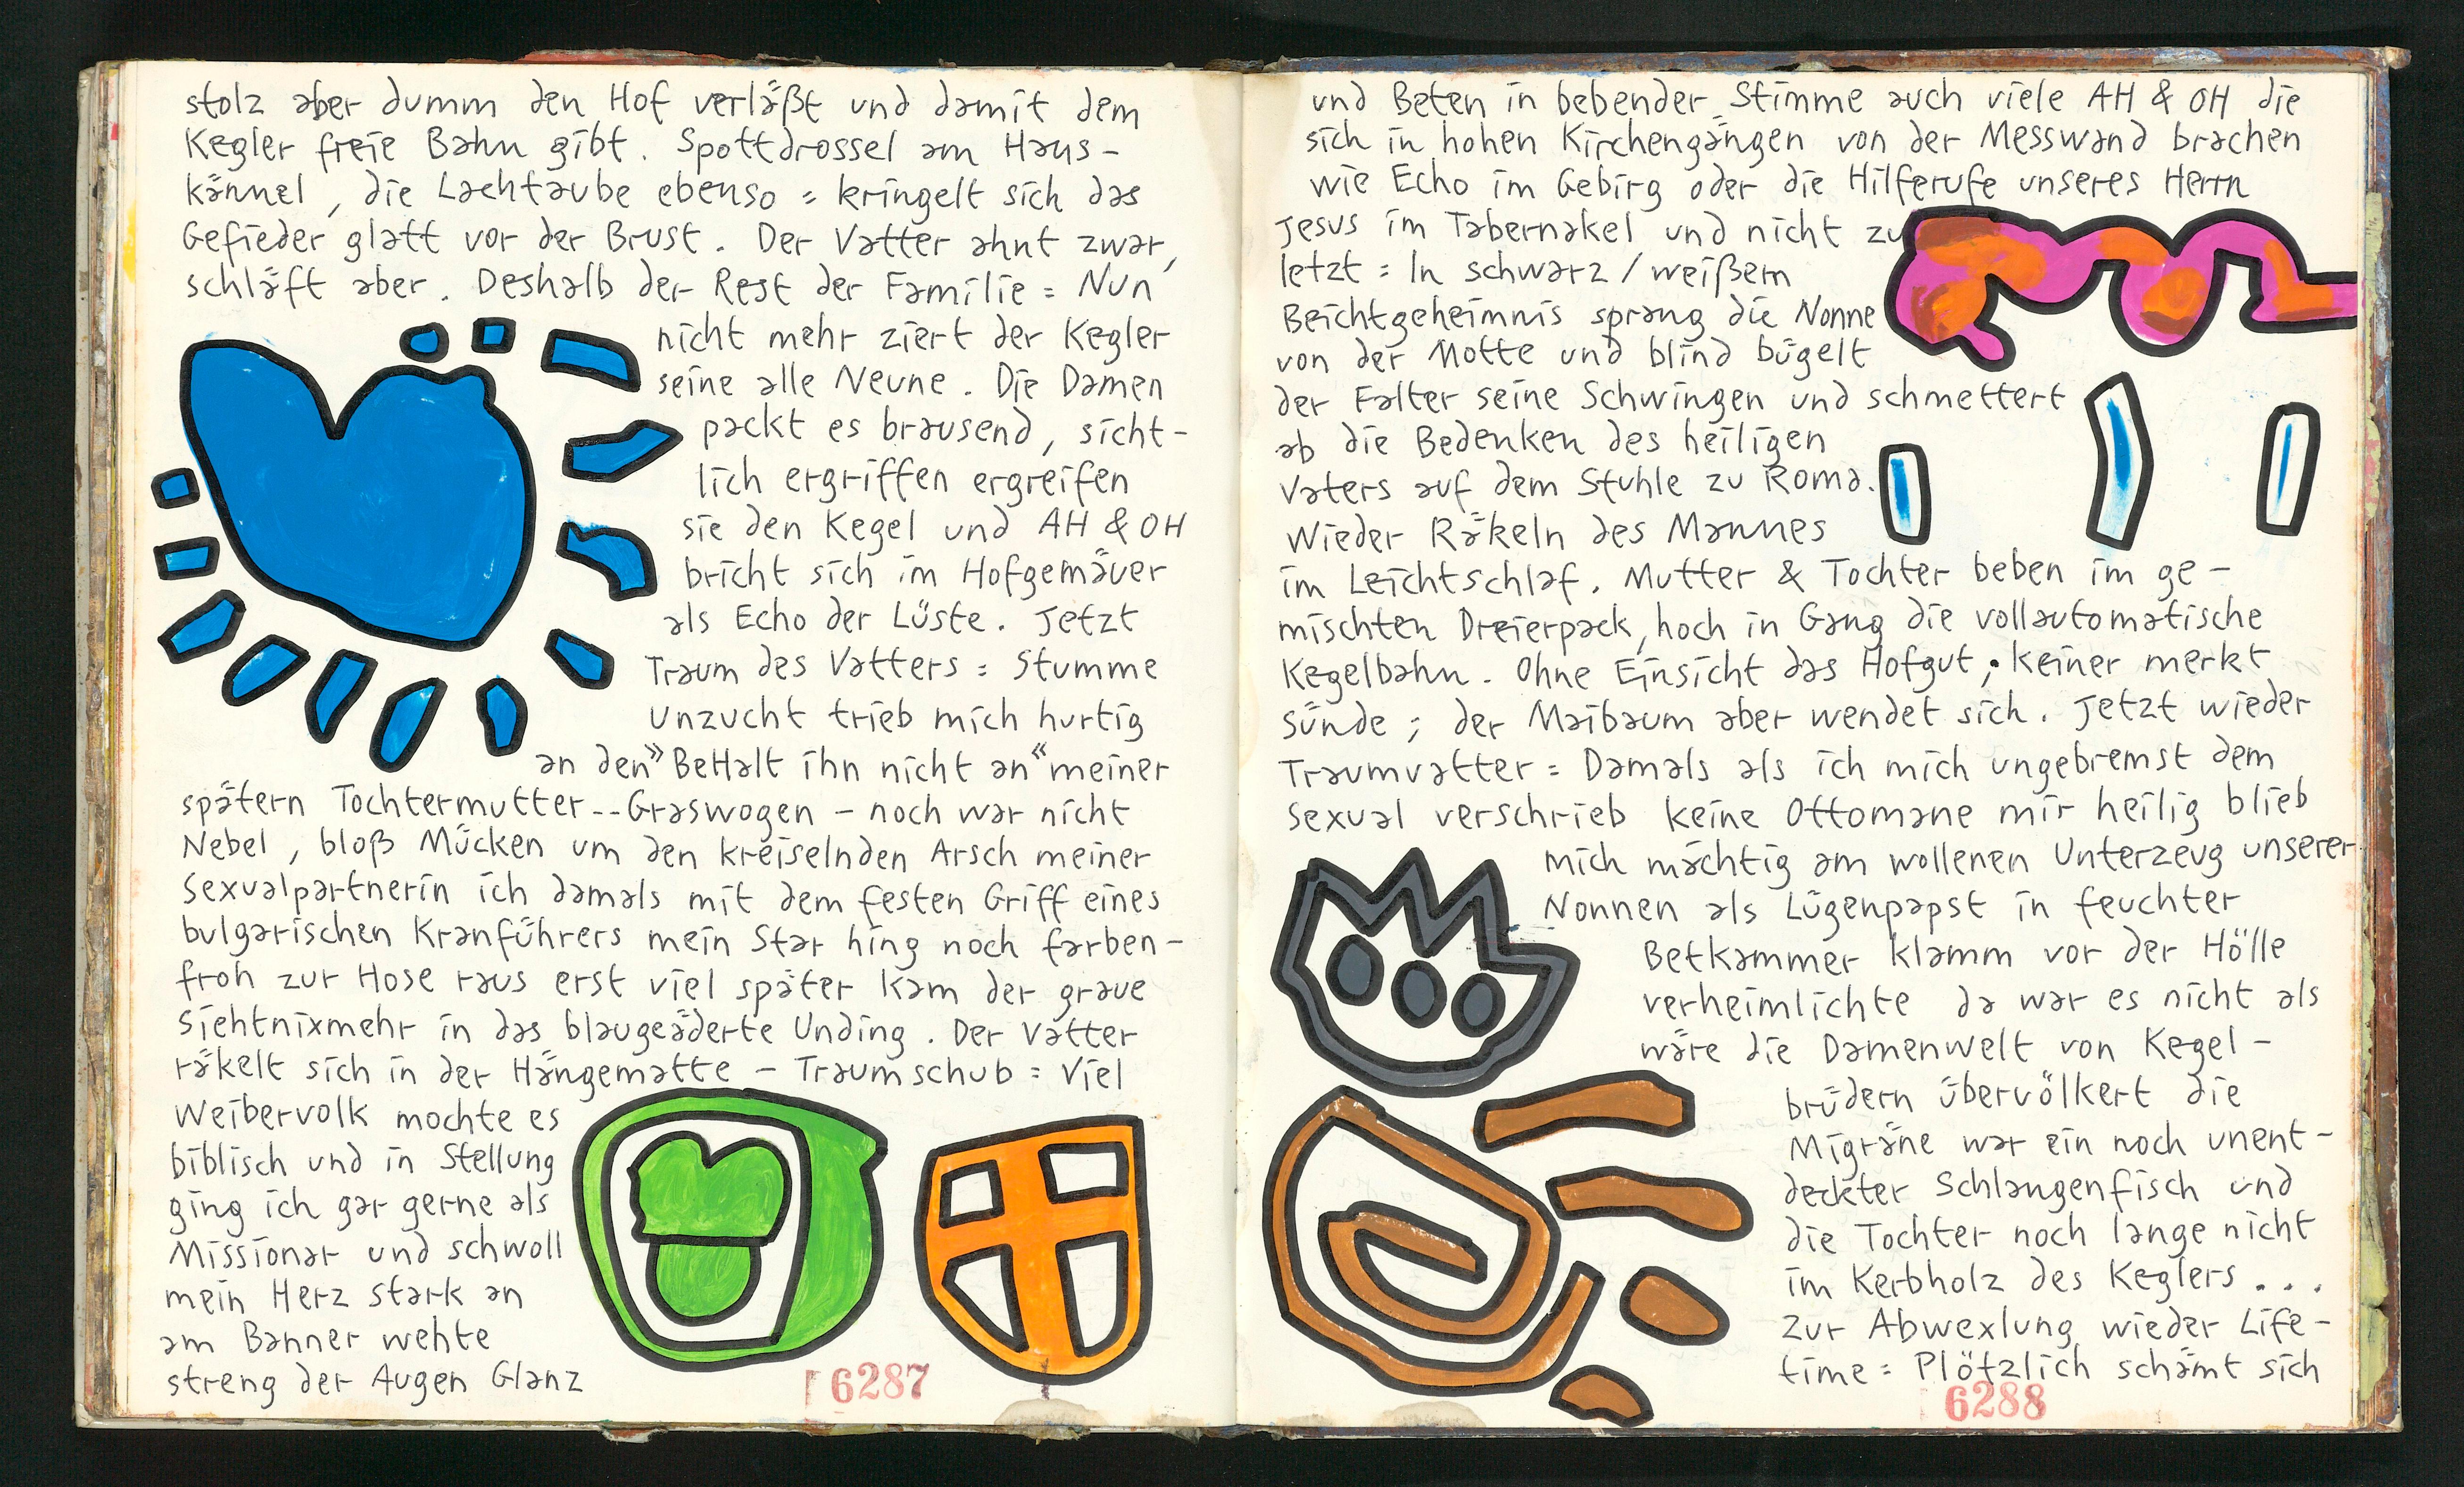 stolz aber dumm den Hof verläßt und damit dem
Kegler freie Bahn gibt. Spottdrossel am Haus-
kännel, die Lachtaube ebenso = kringelt sich das
Gefieder glatt vor der Brust. Der Vatter ahnt zwar,
schläft aber. Deshalb der Rest der Familie = Nun
nicht mehr ziert der Kegler
seine alle Neune. Die Damen
packt es brausend, sicht-
lich ergriffen ergreifen
sie den Kegel und AH & OH
bricht sich im Hofgemäuer
als Echo der Lüste. Jetzt
Traum des Vatters = Stumme
Unzucht trieb mich hurtig
an den »BeHalt ihn nicht an« meiner
spätern Tochtermutter -- Graswogen - noch war nicht
Nebel, bloß Mücken um den kreiselnden Arsch meiner
Sexualpartnerin ich damals mit dem festen Griff eines
bulgarischen Kranführers mein Star hing noch farben-
froh zur Hose raus erst viel später kam der graue
Siehtnixmehr in das blaugeäderte Unding. Der Vatter
räkelt sich in der Hängematte - Traumschub = Viel
Weibervolk mochte es
biblisch und in Stellung
ging ich gar gerne als
Missionar und schwoll
mein Herz stark an
am Banner wehte
streng der Augen Glanz
6287
und Beten in bebender Stimme auch viele AH & OH die
sich in hohen Kirchengängen von der Messwand brachen
wie Echo im Gebirg oder die Hilferufe unseres Herrn
Jesus im Tabernakel und nicht zu
letzt = In schwarz / weißem
Beichtgeheimnis sprang die Nonne
von der Motte und blind bügelt
der Falter seine Schwingen und schmettert
ab die Bedenken des heiligen
Vaters auf dem Stuhle zu Roma.
Wieder Räkeln des Mannes
im Leichtschlaf. Mutter & Tochter beben im ge-
mischten Dreierpack, hoch in Gang die vollautomatische
Kegelbahn. Ohne Einsicht das Hofgut; keiner merkt
Sünde; der Maibaum aber wendet sich. Jetzt wieder
Traumvatter = Damals als ich mich ungebremst dem
Sexual verschrieb keine Ottomane mir heilig blieb
mich mächtig am wollenen Unterzeug unserer
Nonnen als Lügenpapst in feuchter
Betkammer klamm vor der Hölle
verheimlichte da war es nicht als
wäre die Damenwelt von Kegel-
brüdern übervölkert die
Migräne war ein noch unent-
deckter Schlangenfisch und
die Tochter noch lange nicht
im Kerbholz des Keglers ...
zur Abwexlung wieder Life-
time = Plötzlich schämt sich
6288